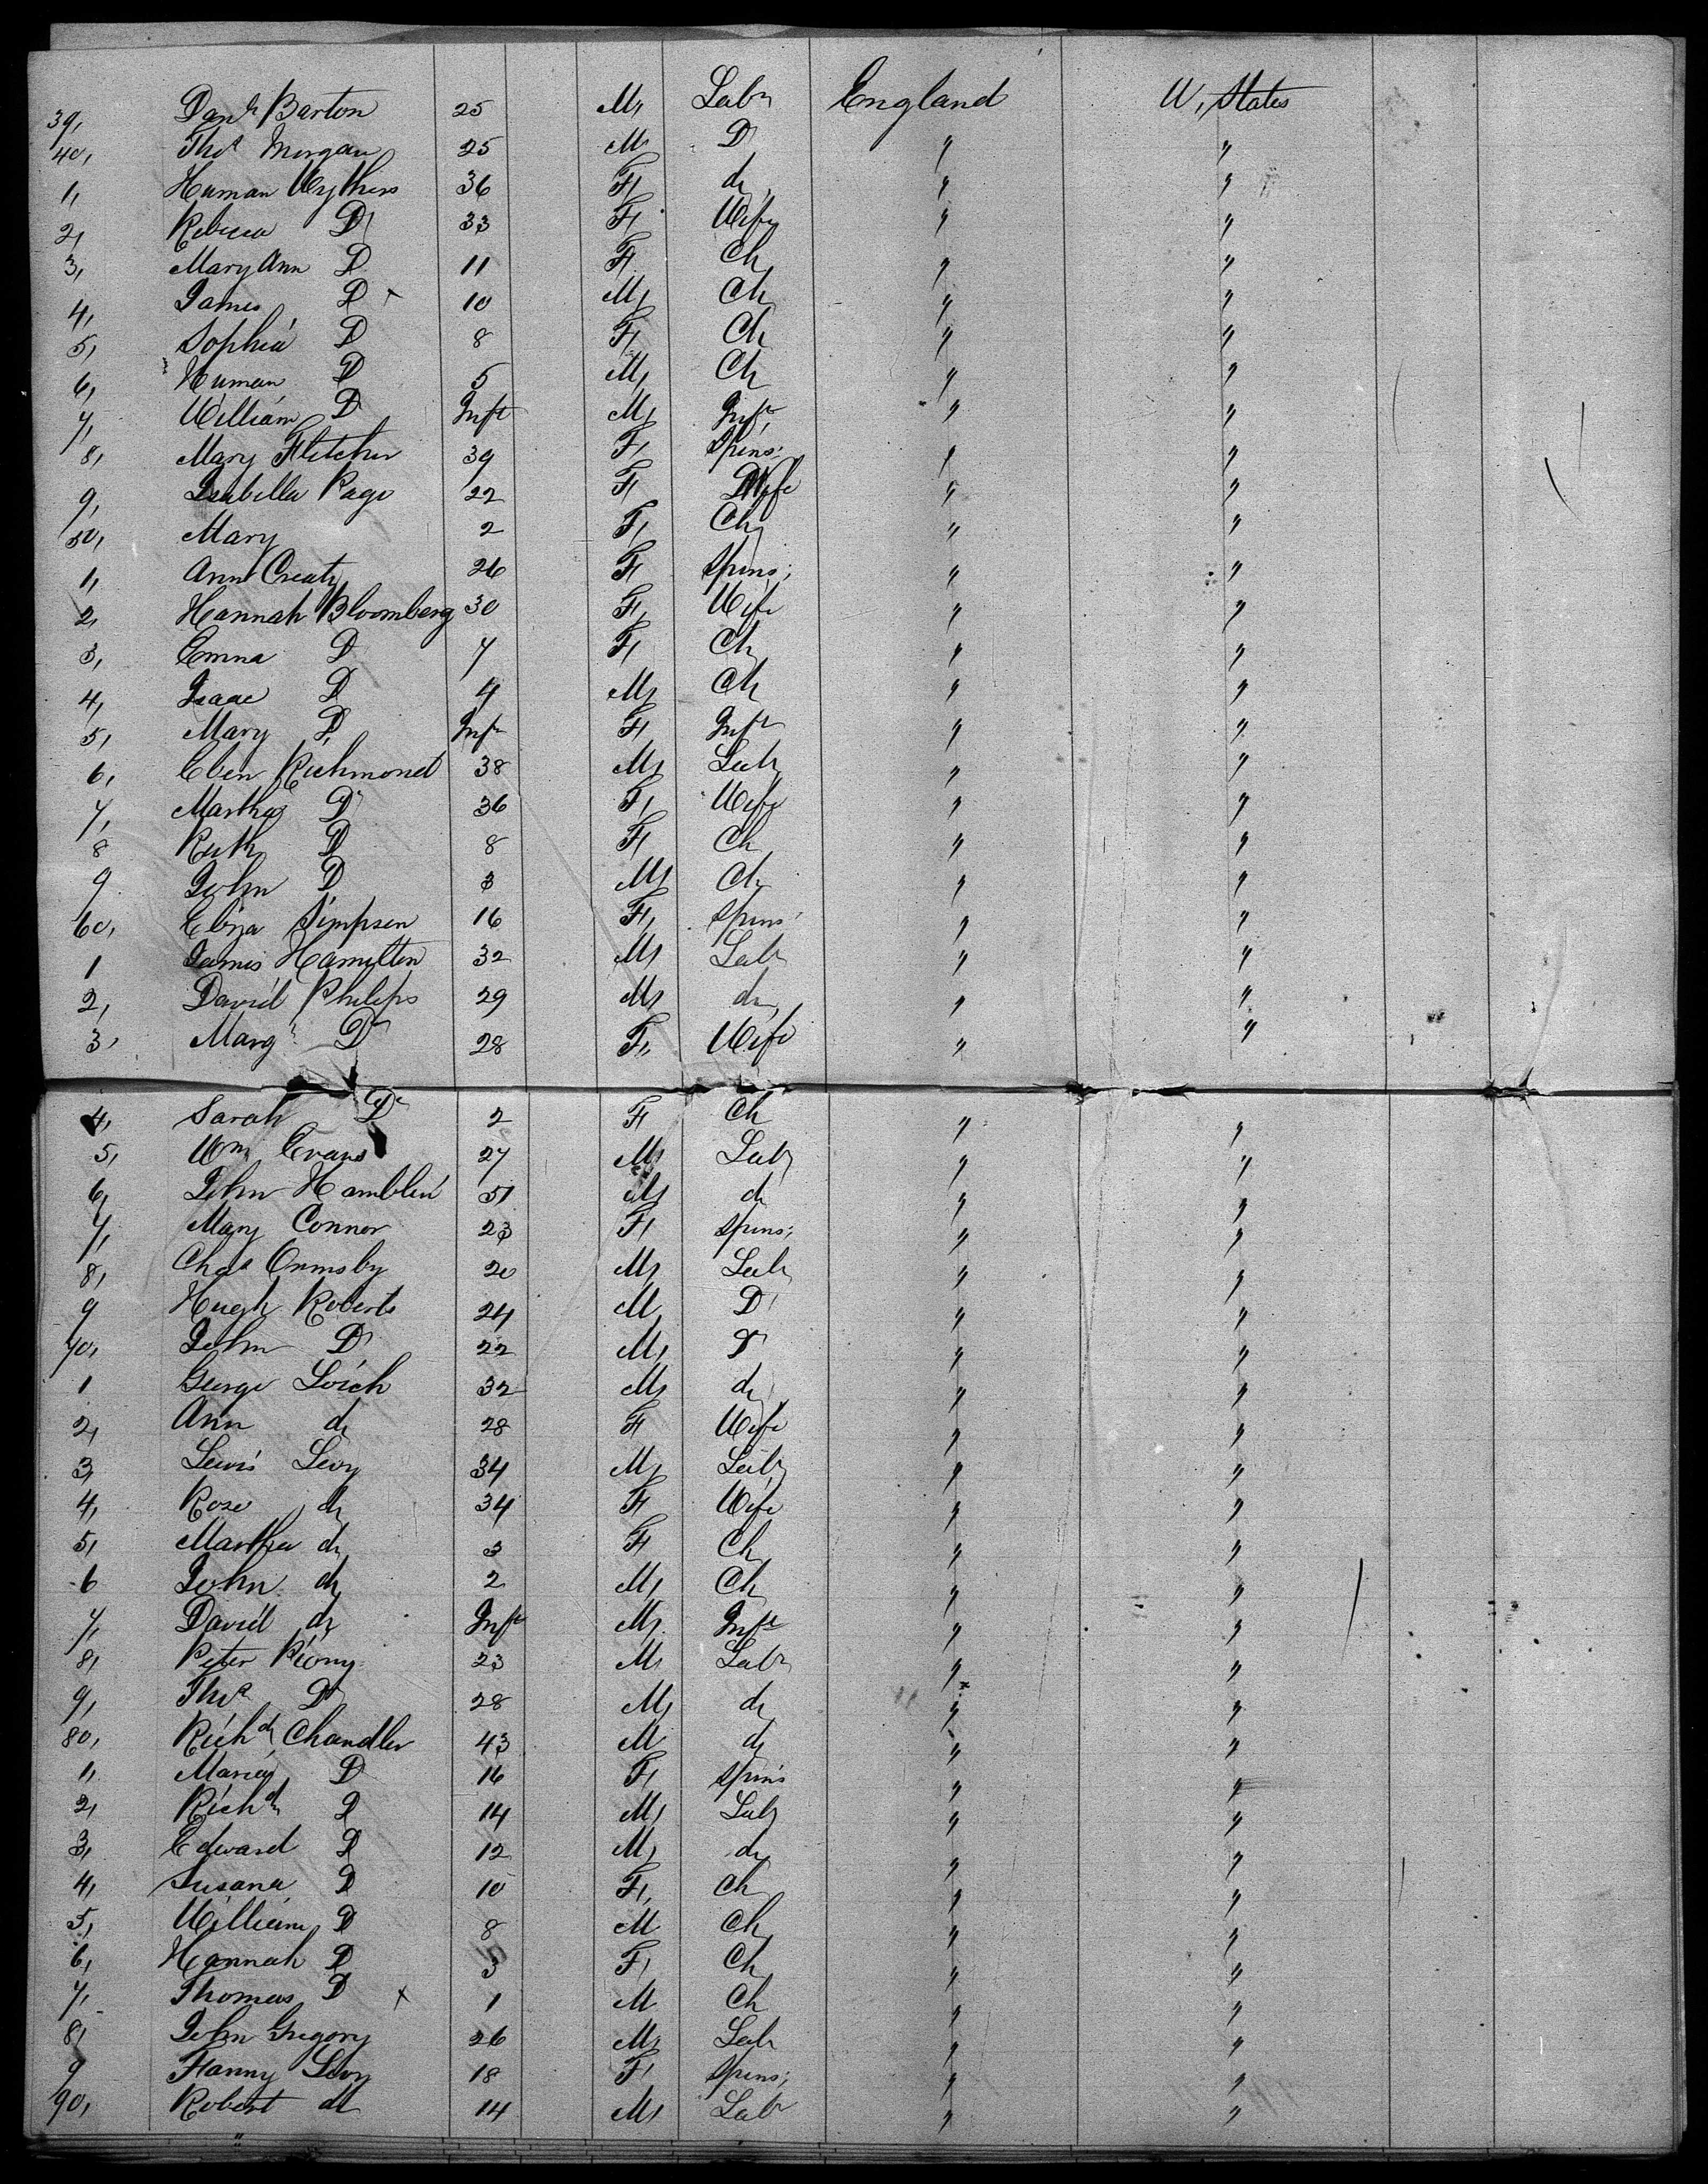 39, Danl Barton 25 M, Labr England U, States
40, Thos Morgan 25 M D " "
1, Human Wythers 36 F, do " "
2, Rebecca D 33 F, Wife " "
3, Mary Ann D 11 F, Ch " "
4, James D 10 M, Ch " "
5, Sophia D 8 F, Ch " "
6, Human D 5 M, Ch " "
7, William D Inft M, Inft " "
8, Mary Fletcher 39 F, Spins; " "
9, Isabella Page 22 F, Wife " "
50, Mary 2 F, Ch " "
1, Ann Creaty 26 F, Spins; " "
2, Hannah Bloomberg 30 F, Wife " "
3, Emma D 7 F, Ch " "
4, Isaac D 4 M, Ch " "
5, Mary D, Inft F, Inft " "
6, Eben Richmond 38 M, Labr " "
7, Martha Do 36 F, Wife " "
8 Ruth D 8 F, Ch " "
9 John D 3 M, Ch " "
60, Eliza Simpson 16 F, Spins " "
1 James Hamilton 32 M, Labr " "
2, David Philips 29 M, do " "
3, Margt Do 28 F, Wife " "
4, Sarah Do 2 F, Ch " "
5, Wm, Evans 27 M, Labr " "
6, John Hamblin 51 M do " "
7, Mary Connor 23 F, Spins; " "
8, Chas Ormsby 20 M, Labr " "
9 Hugh Roberts 24 M, D " "
70, John D 22 M, D " "
1 George Loich 32 M, do " "
2, Ann do 28 F, Wife " "
3, Lewis Levy 34 M, Labr " "
4, Rose do 34 F, Wife " "
5, Martha do 3 F, Ch " "
6 John do 2 M, Ch " "
7, David do Inft M, Inft " "
8, Peter 23 M, Labr " "
9, Thos D 28 M, do " "
80, Richd Chandler 43 M do " "
1, Maria D 16 F, Spins " "
2, Richd D 14 M, Labr " "
3, Edward D 12 M, do " "
4, Susana D 10 F, Ch " "
5, William D 8 M Ch " "
6, Hannah D 3 F, Ch " "
7, Thomas D x 1 M Ch " "
8, John Gregory 26 M, Labr " "
9 Fanny Levy 18 F, Spins; " "
90, Robert do 14 M, Labr " "